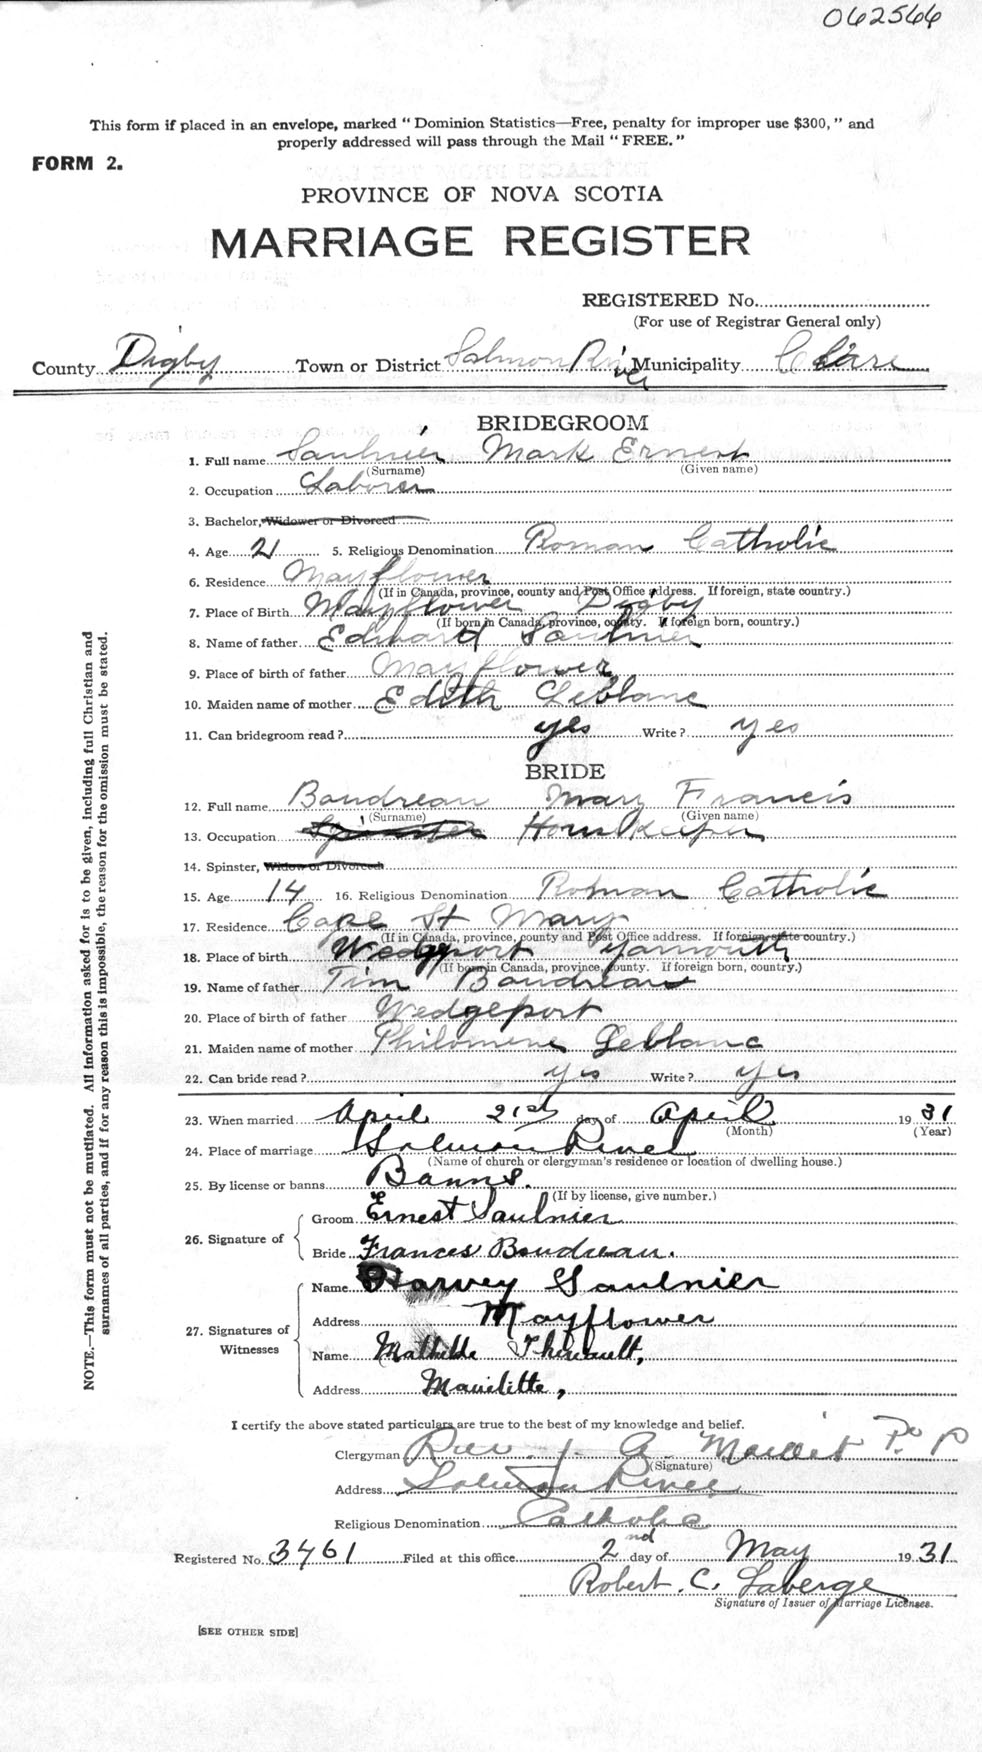 062566
This form if placed in an envelope, marked "Dominion Statistics—Free, penalty for improper use $300," and
properly addressed will pass through the Mail "FREE."
FORM 2.
PROVINCE OF NOVA SCOTIA
MARRIAGE REGISTER
REGISTERED No.
(For use of Registrar General only)
County Digby Town or District Salmon River Municipality Clare
BRIDEGROOM
1. Full name Saulnier Mark Ernest
(Surname) (Given name)
2. Occupation Laborer
3. Bachelor, Widower or Divorced
4. Age 21 5. Religious Denomination Roman Catholic
6. Residence Mayflower
(If in Canada, province, county and Post Office address. If foreign, state country.)
7. Place of Birth Mayflower Digby
(If born in Canada, province, county. If foreign born, country.)
8. Name of father Edward Saulnier
9. Place of birth of father Mayflower
10. Maiden name of mother Edith Leblanc
11. Can bridegroom read? yes Write? yes
BRIDE
12. Full name Boudreau Mary Francis
(Surname) (Given name)
13. Occupation Spinster House Keeper
14. Spinster, Widow or Divorced
15. Age 14 16. Religious Denomination Roman Catholic
17. Residence Cape St Mary
(If in Canada, province, county and Post Office address. If foreign state country.)
18. Place of birth Wedgeport Yarmouth
(If born in Canada, province, county. If foreign born, country.)
19. Name of father Tim Boudreau
20. Place of birth of father Wedgeport
21. Maiden name of mother Philomene Leblanc
22. Can bride read? yes Write? yes
23. When married April 21st day of April 1931
(Month) (Year)
24. Place of marriage Salmon River
(Name of church or clergyman's residence or location of dwelling house.)
25. By license or banns Banns.
(If by license, give number.)
26. Signature of
Groom Ernest Saulnier
Bride Frances Boudreau.
27. Signatures of Witnesses
Name Harvey Saulnier
Address Mayflower
Name Mathilde Thibault,
Address Mavilette,
I certify the above stated particulars are true to the best of my knowledge and belief.
Clergyman Rev. J. A. P. P
(Signature)
Address Salmon River
Religious Denomination Catholic
Registered No. 3461 Filed at this office 2nd day of May 1931
Robert. C. Laberge
Signature of Issuer of Marriage Licenses.
[SEE OTHER SIDE]
NOTE.—This form must not be mutilated. All information asked for is to be given, including full Christian and
surnames of all parties, and if for any reason this is impossible, the reason for the omission must be stated.